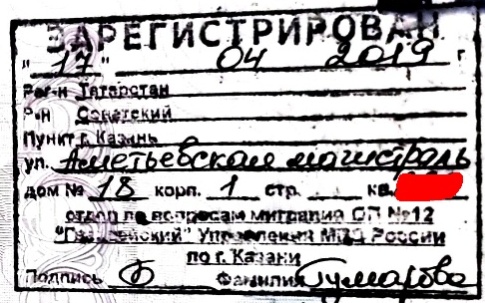 ЗАРЕГИСТРИРОВАН
"17" 04 2019 г
Рег-н Татарстан
Р-н Советский
Пункт г. Казань
ул. Аметьевская магистраль
дом № 18 корп. 1 стр. кв.
отдел по вопросам миграции ОП №12
Управления МВД России
по г. Казани
Подпись Фамилия Гумарова